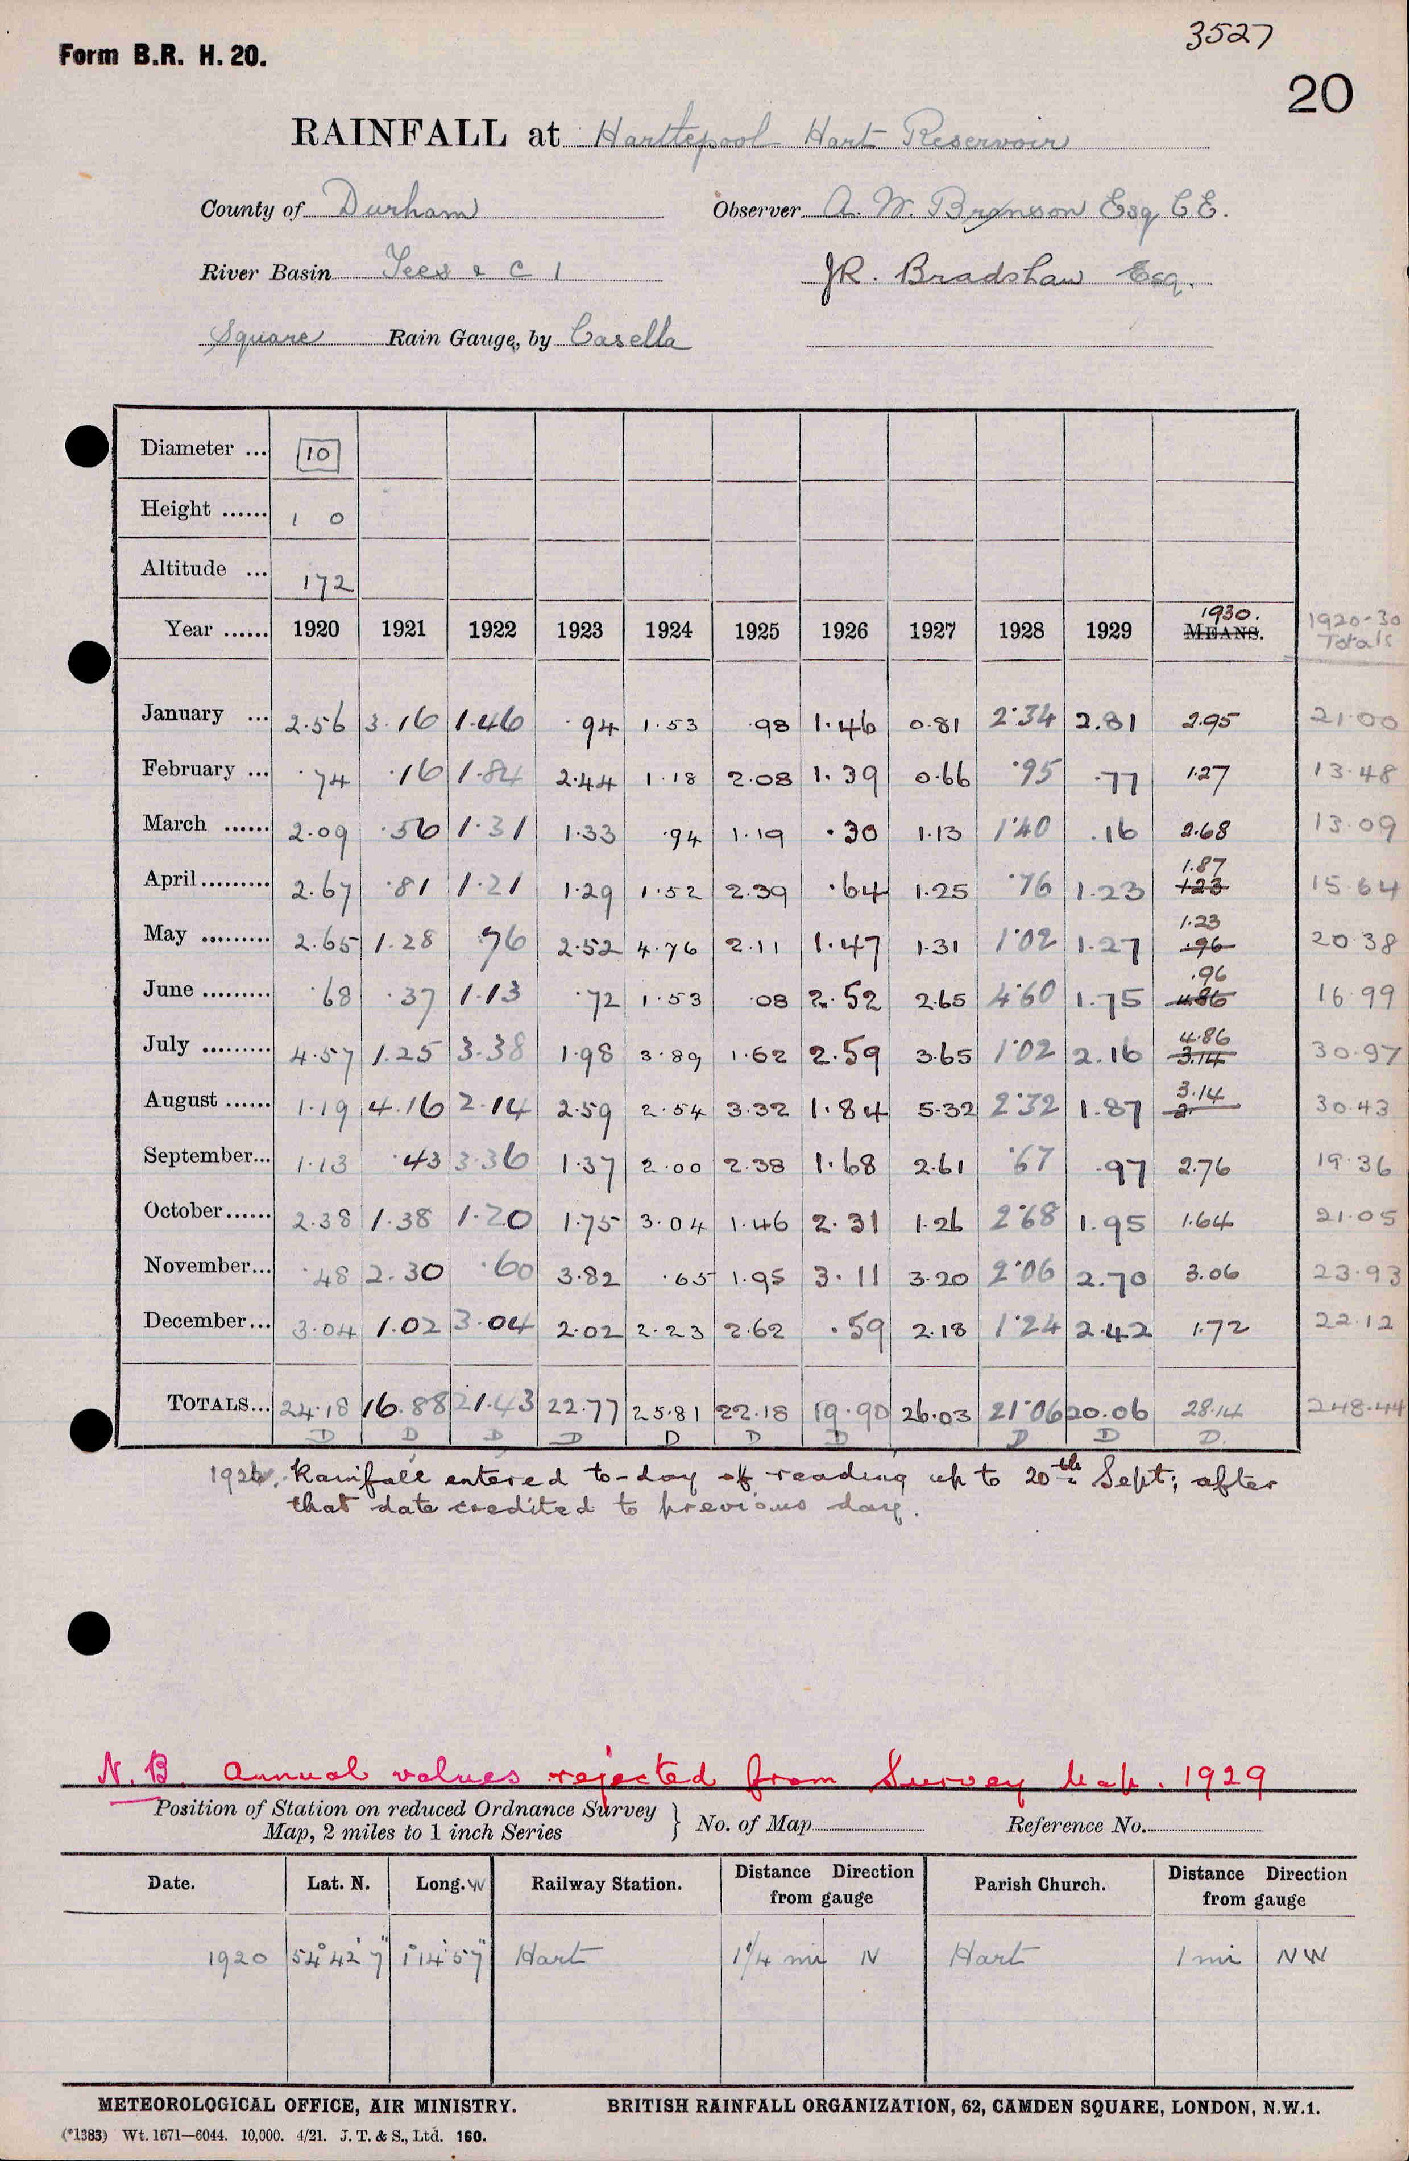 3527
Form B.R. H. 20.
20
RAINFALL at Hartlepool Hart Reservoir
County of Durham Observer A. W. Branson Esq C.E.
River Basin Tees & C 1 J R. Bradshaw Esq.
Square Rain Gauge, by Casella
Diameter ... 10
Height ...... 1 0
Altitude ... 172
1930. 1920-30
Year ...... 1920 1921 1922 1923 1924 1925 1926 1927 1928 1929 MEANS. Totals
January ... 2.56 3.16 1.46 .94 1.53 .98 1.46 0.81 2.34 2.81 2.95 21.00
February ... .74 .16 1.84 2.44 1.18 2.08 1.39 0.66 .95 .77 1.27 13.48
March ...... 2.09 .56 1.31 1.33 .94 1.19 .30 1.13 1.40 .16 2.68 13.09
1.87
April......... 2.67 .81 1.21 1.29 1.52 2.39 .64 1.25 .76 1.23 1.23 15.64
1.23
May ......... 2.65 1.28 .76 2.52 4.76 2.11 1.47 1.31 1.02 1.27 .96 20.38
.96
June ......... .68 .37 1.13 .72 1.53 .08 2.52 2.65 4.60 1.75 4.86 16.99
4.86
July ......... 4.57 1.25 3.38 1.98 3.89 1.62 2.59 3.65 1.02 2.16 3.14 30.97
3.14
August ...... 1.19 4.16 2.14 2.59 2.54 3.32 1.84 5.32 2.32 1.87 2. 30.43
September... 1.13 .43 3.36 1.37 2.00 2.38 1.68 2.61 .67 .97 2.76 19.36
October...... 2.38 1.38 1.20 1.75 3.04 1.46 2.31 1.26 2.68 1.95 1.64 21.05
November... .48 2.30 .60 3.82 .65 1.95 3.11 3.20 2.06 2.70 3.06 23.93
December... 3.04 1.02 3.04 2.02 2.23 2.62 .59 2.18 1.24 2.42 1.72 22.12
TOTALS... 24.18 16.88 21.43 22.77 25.81 22.18 19.90 26.03 21.06 20.06 28.14 248.44
D D D D D D D D D D
1926. Rainfall entered to-day of reading up to 20th Sept; after
that date credited to previous day.
N.B. Annual values rejected from Survey Map. 1929
Position of Station on reduced Ordnance Survey
Map, 2 miles to 1 inch Series } No. of Map Reference No.
Date. Lat. N. Long. W Railway Station. Distance Direction from gauge Parish Church. Distance Direction from gauge
1920 54° 42' 7" 1° 14' 57" Hart 1 1/4 mi N Hart 1 mi NW
METEOROLOGICAL OFFICE, AIR MINISTRY. BRITISH RAINFALL ORGANIZATION, 62, CAMDEN SQUARE, LONDON, N.W.1.
(*1383) Wt. 1671—6044. 10,000. 4/21. J. T. & S., Ltd. 160.